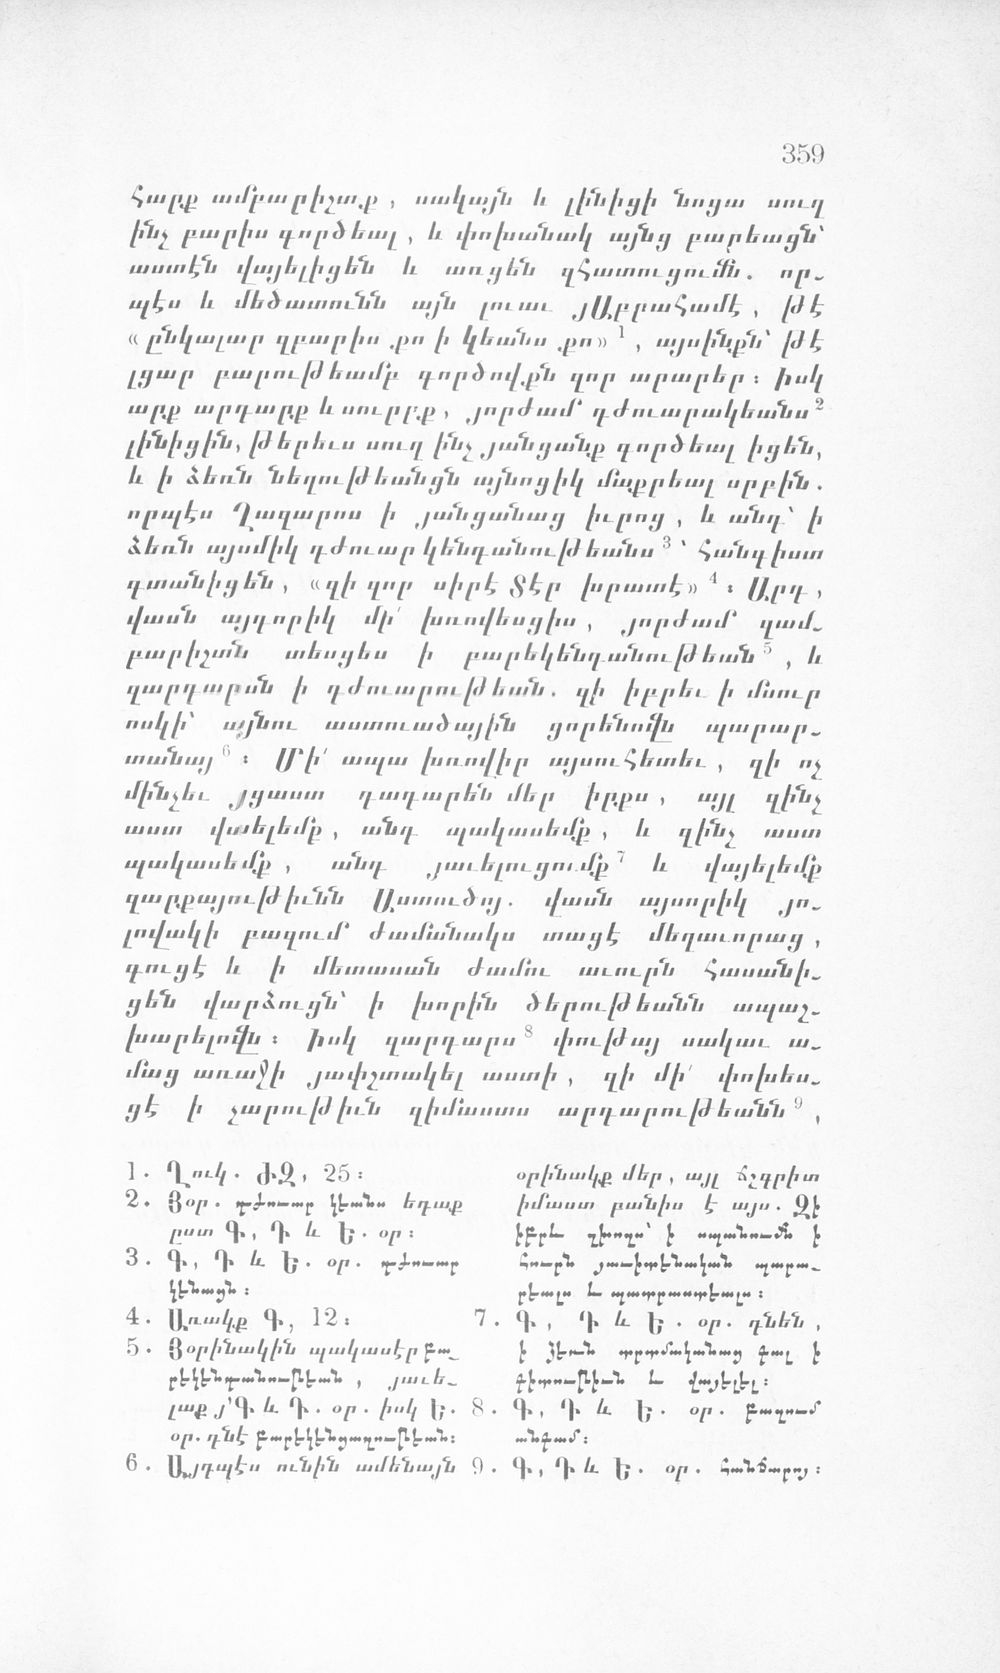 359
հարք ամբարիշտք, սակայն և լինիցի նոցա սուղ
ինչ բարիս գործեալ, և փոխանակ այնց բարեացն՝
աստէն վայելիցեն և առցեն զհատուցումն. որ֊
պէս և մեծատունն այն լուաւ յԱբրահամէ, թէ
«ընկալար զբարիս քո ի կեանս քո»1, այսինքն՝ թէ
լցար բարութեամբ գործովքն զոր արարեր։ իսկ
արք արդարք և սուրբք, յորժամ դժուարակեանս2
լինիցին, թերեւս սուղ ինչ յանցանք գործեալ իցեն,
և ի ձեռն նեղութեանցն այնոցիկ մաքրեալ սրբին.
որպէս Ղազարոս ի յանցանաց իւրոց, և անդ՝ ի
ձեռն այսմիկ դժուար կենդանութեանս3՝ հանգիստ
գտանիցեն, «զի զոր սիրէ Տէր խրատէ»4։ Արդ,
վասն այդորիկ մի՛ խռովեսցիս, յորժամ զամ֊
բարիշտն տեսցես ի բարեկենդանութեան5, և
զարդարսն ի դժուարութեան. զի իբրեւ ի մսուր
ոսկի՝ այնու աստուածային ցորենովն պարար֊
տանայ6։ Մի՛ ապա խռովիր այսուհետեւ, զի ոչ
մինչեւ յցաստ դադարեն մեր իրքս, այլ զինչ
աստ վաելեմք, անդ պակասեմք, և զինչ աստ
պակասեմք, անդ յաւելուցումք7 և վայելեմք
զարքայութիւնն Աստուծոյ. վասն այսորիկ յո֊
լովակի բազում ժամանակս տացէ մեղաւորաց,
գուցէ և ի մետասան ժամու աւուրն հասանի֊
ցեն վարձուցն՝ ի խորին ծերութեանն ապաշ֊
խարելովն։ Իսկ զարդարս8 փութայ սակաւ ա֊
մաց առաջի յափշտակել աստի, զի մի՛ փոխես֊
ցէ ի չարութիւն զիմաստս արդարութեանն9,
1. Ղուկ. ԺԶ, 25։
2. Յօր. դժուար կեանս եդաք
ըստ Գ, Դ և Ե. օր։
3. Գ, Դ և Ե. օր. դժուար
կենացն։
4. Առակք Գ, 12։
5. Յօրինակին պակասէր բա֊
րեկենդանութեան, յաւե֊
լաք յ՚Գ և Դ. օր. իսկ Ե.
օր. դնէ բարեկենցաղութեան։
6. Այդպէս ունին ամենայն
օրինակք մեր, այլ ճշգրիտ
իմաստ բանիս է այս. Զի
իբրև զխոզս՝ ի սպանումն ի
հուրն յաւիտենական պարա֊
րեալս և պատրաստեալս։
7. Գ, Դ և Ե. օր. դնեն,
ի ձեռն պրտմականաց գալ ի
գիտութիւն և վայելել։
8. Գ, Դ և Ե. օր. բազում
անգամ։
9. Գ, Դ և Ե. օր. հանճարոյ։